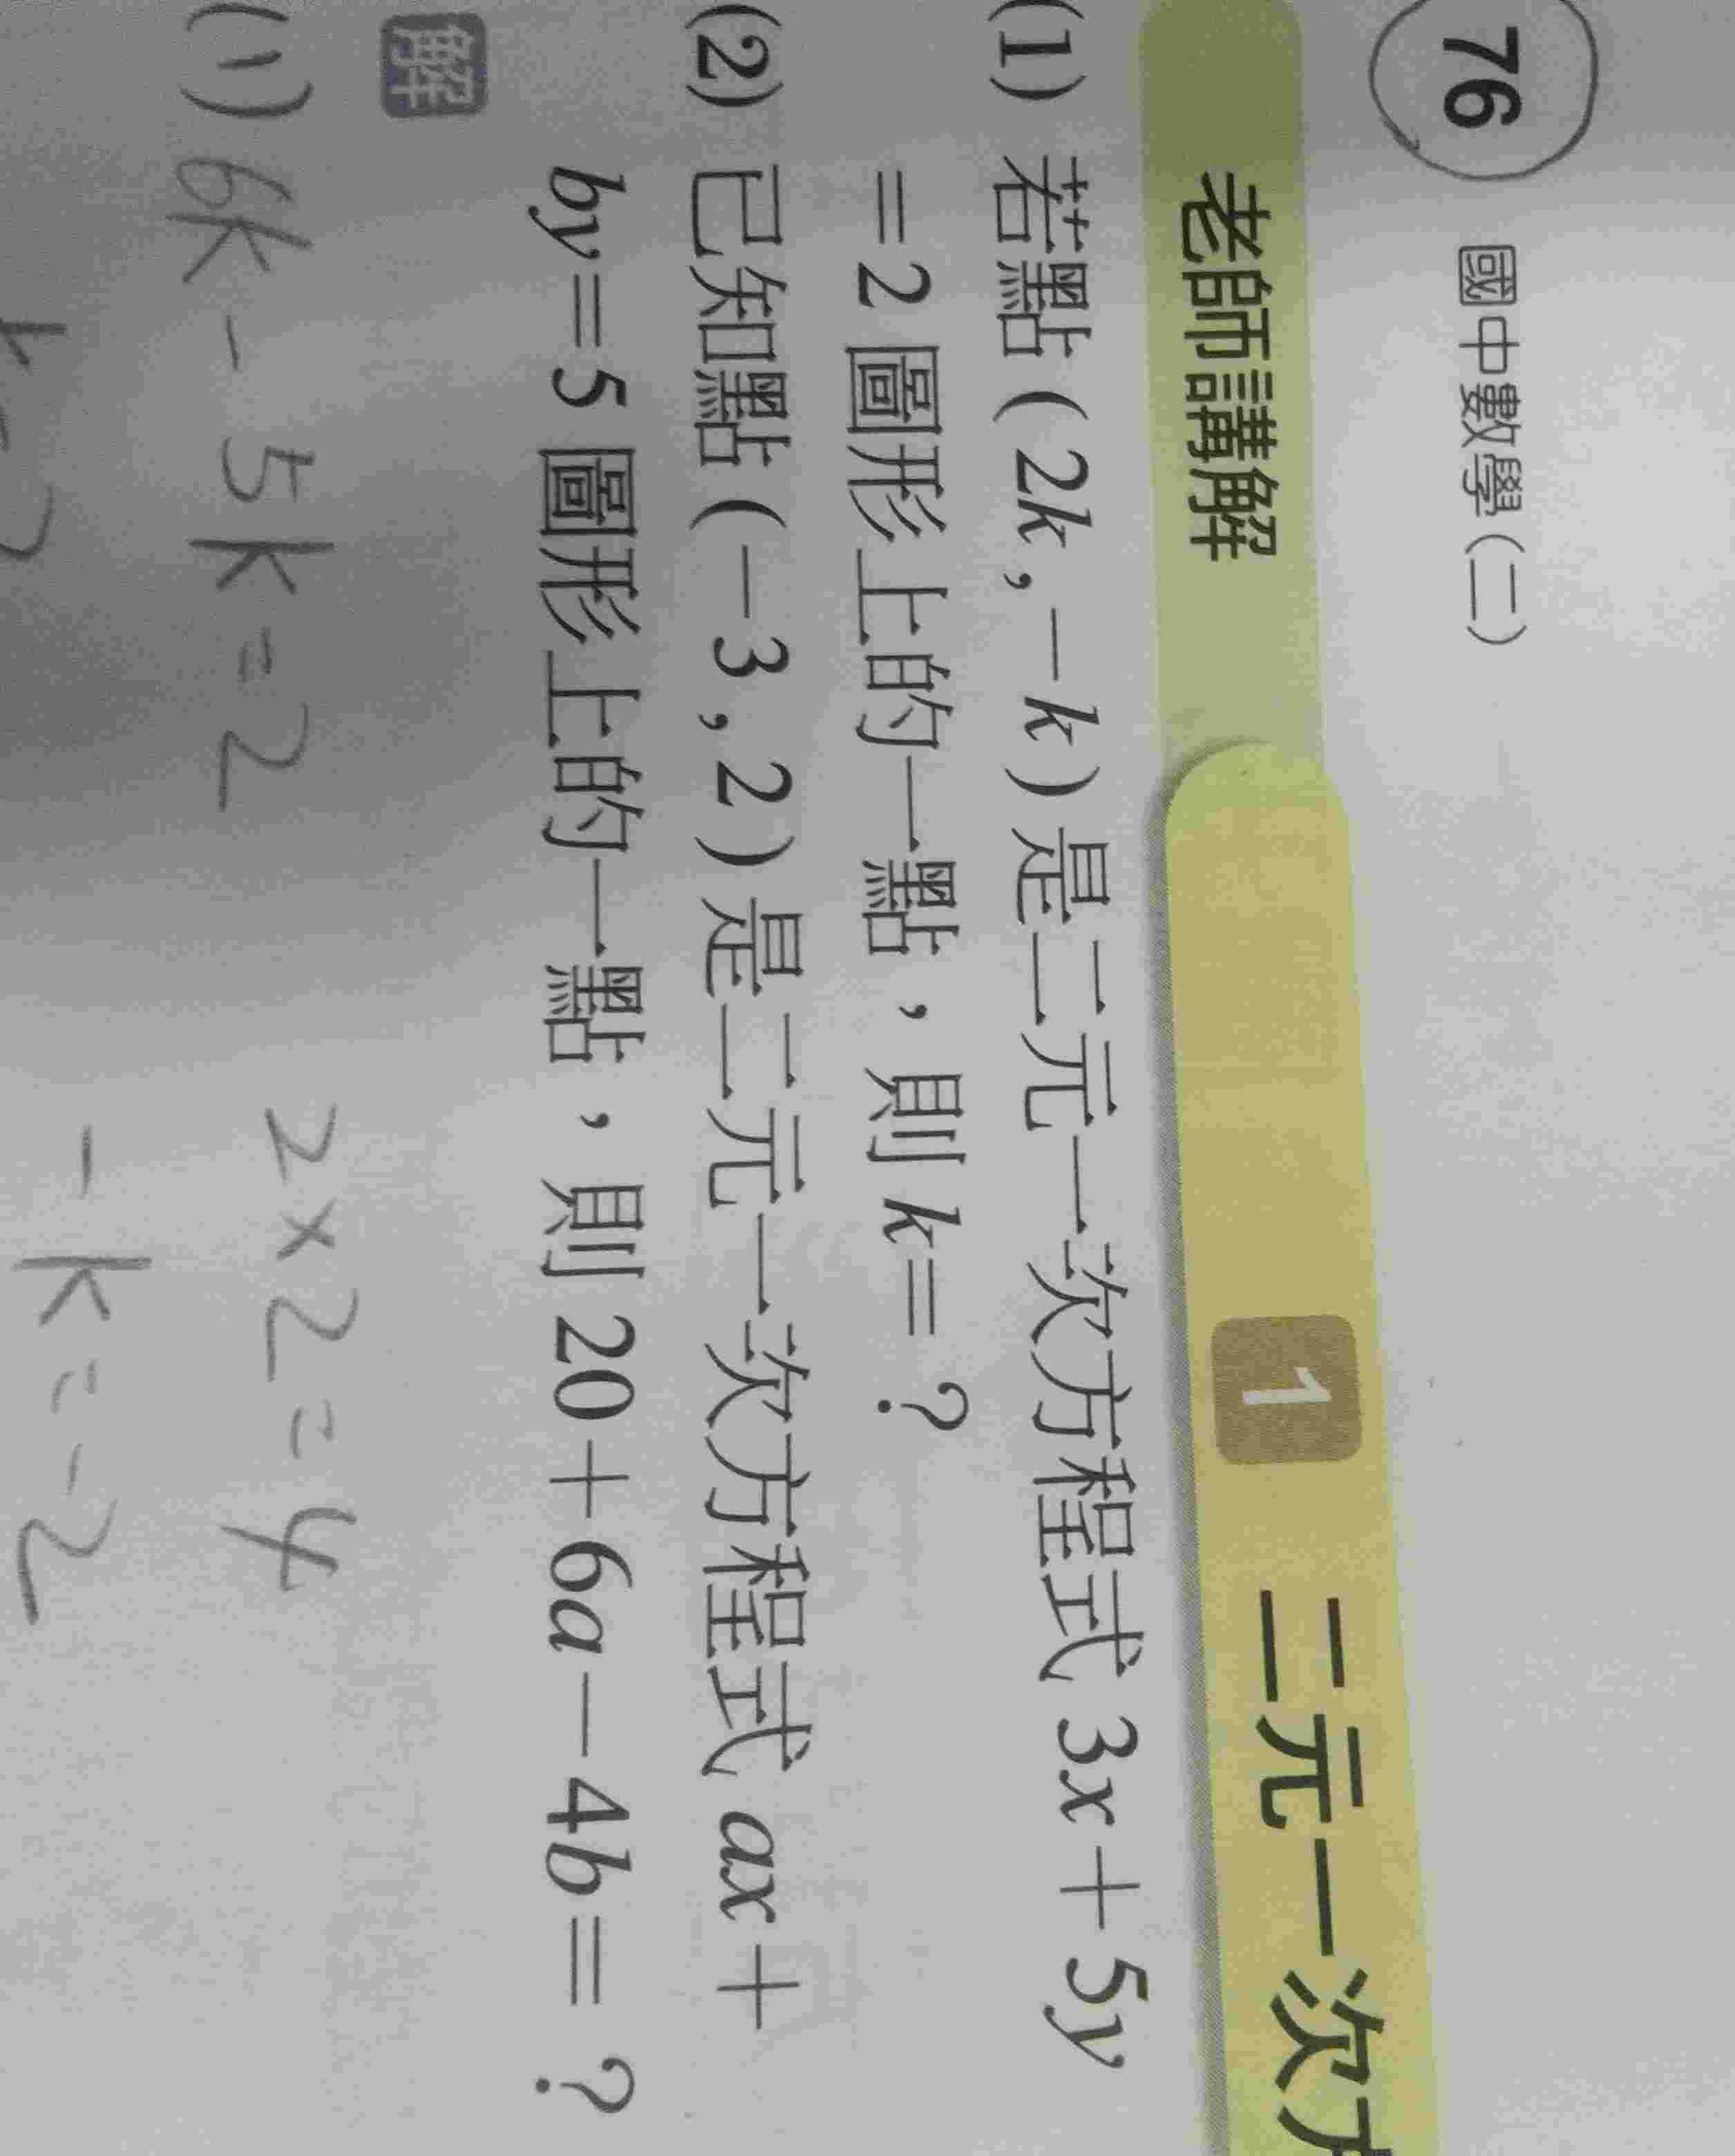 76 國中數學(二)
老師講解 1 二元一次方
(1) 若點(2k,-k)是二元一次方程式3x+5y
=2圖形上的一點,則k=?
(2) 已知點(-3,2)是二元一次方程式ax+
by=5圖形上的一點,則20+6a-4b=?
解
(1) 6k-5k=2 2×2=4
-k=-2